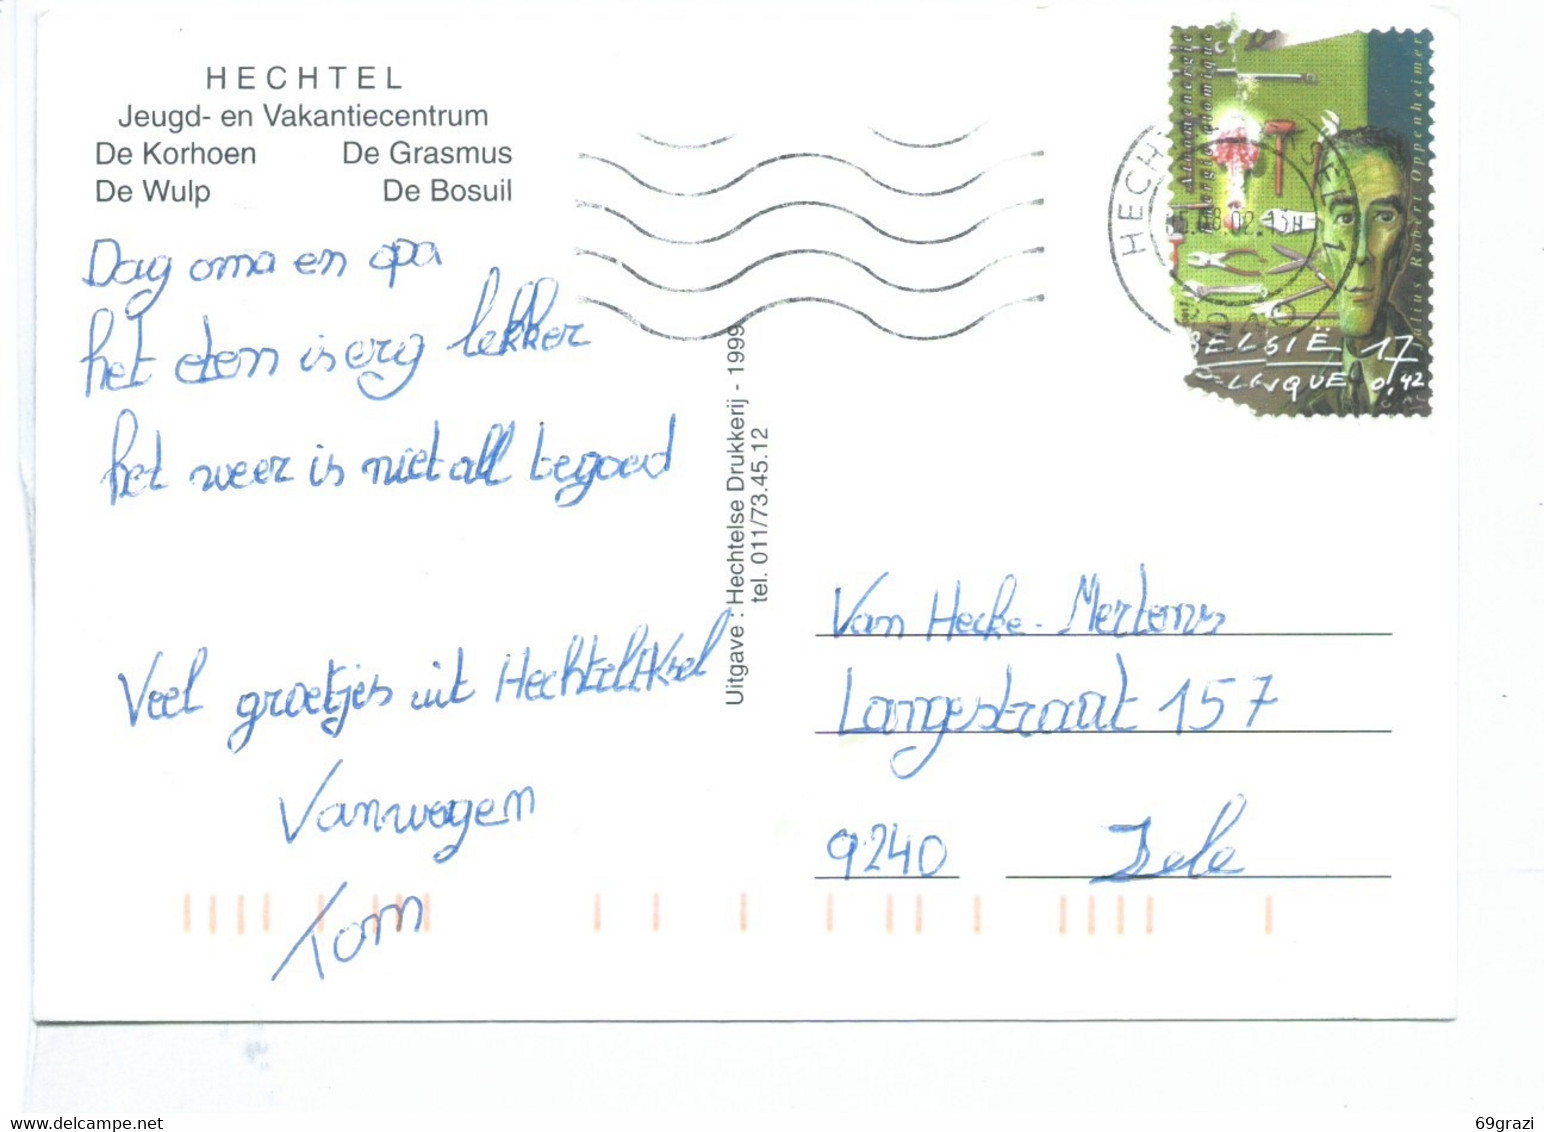 HECHTEL
Jeugd- en Vakantiecentrum
De Korhoen De Grasmus
De Wulp De Bosuil
Dag oma en opa
het eten is erg lekker
het weer is niet all te goed
Veel groetjes uit Hechtel
Van wegen
Tom
Uitgave : Hechtelse Drukkerij - 1999
tel. 011/73.45.12
Atoomenergie
Energie atomique
Julius Robert Oppenheimer
BELGIË 17
BELGIQUE 0,42
HECHTEL
.02.15H
Van Hecke - Mertens
Langestraat 157
9240 Zele
69grazi